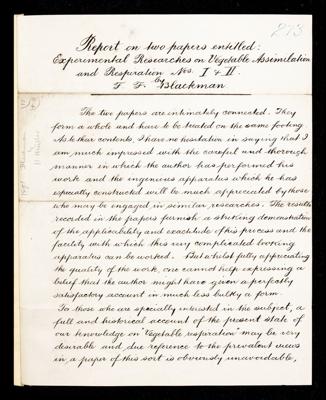 273
Report on two papers entitled:
Experimental Researches on Vegetable Assimilation
and Respiration Nos. I & II.
by
F. F. Blackman
The two papers are intimately connected. They
form a whole and have to be treated on the same footing
As to their contents, I have no hesitation in saying that I
am much impressed with the careful and thorough
manner in which the author has performed this
work and the ingenious apparatus which he has
especially constructed will be much appreciated by those
who may be engaged in similar researches. The results
recorded in the papers furnish a striking demonstration
of the applicability and exactitude of his process and the
facility with which this very complicated looking
apparatus can be worked. But whilst fully appreciating
the quality of the work, one cannot help expressing a
belief that the author might have given a perfectly
satisfactory account in much less bulky a form.
To those who are specially interested in the subject, a
full and historical account of the present state of
our knowledge on "Vegetable respiration" may be very
desirable and due reference to the prevalent views
in a paper of this sort is obviously unavoidable,